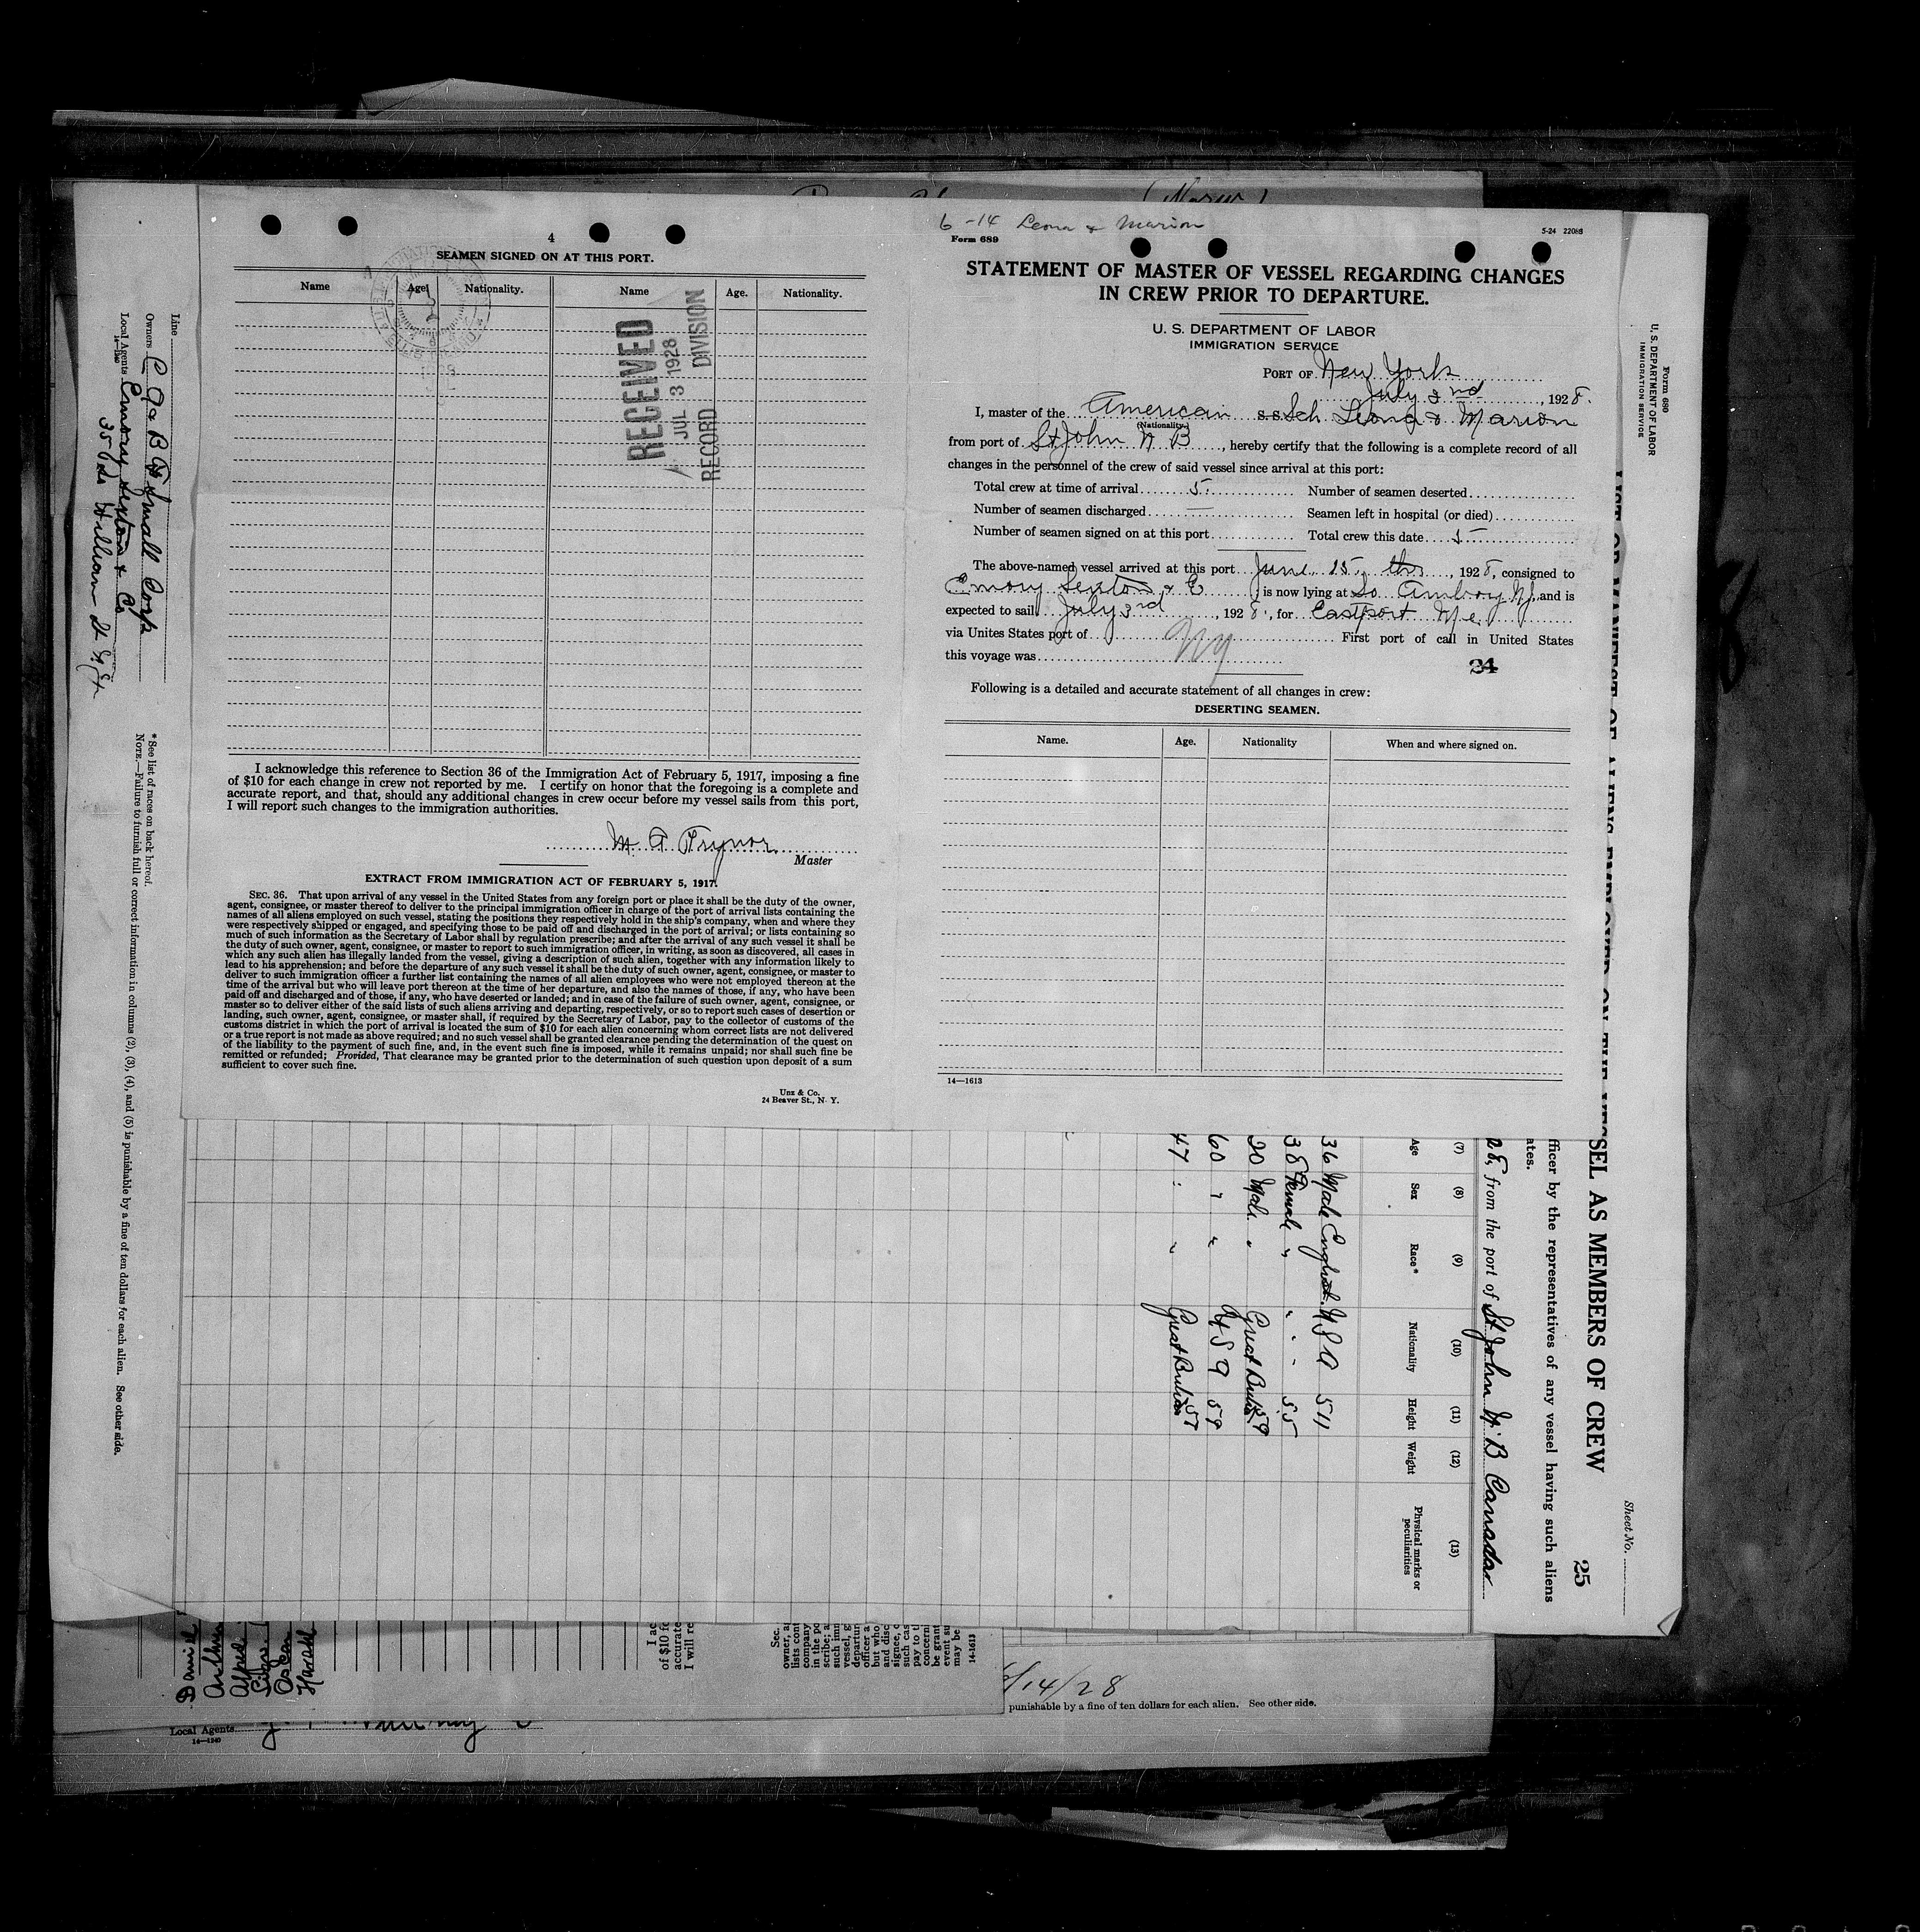 4
SEAMEN SIGNED ON AT THIS PORT.
Name Age Nationality. Name Age. Nationality.
RECEIVED
JUL 3 1928
RECORD DIVISION
I acknowledge this reference to Section 36 of the Immigration Act of February 5, 1917, imposing a fine
of $10 for each change in crew not reported by me. I certify on honor that the foregoing is a complete and
accurate report, and that, should any additional changes in crew occur before my vessel sails from this port,
I will report such changes to the immigration authorities.
Master
EXTRACT FROM IMMIGRATION ACT OF FEBRUARY 5, 1917.
SEC. 36. That upon arrival of any vessel in the United States from any foreign port or place it shall be the duty of the owner,
agent, consignee, or master thereof to deliver to the principal immigration officer in charge of the port of arrival lists containing the
names of all aliens employed on such vessel, stating the positions they respectively hold in the ship's company, when and where they
were respectively shipped or engaged, and specifying those to be paid off and discharged in the port of arrival; or lists containing so
much of such information as the Secretary of Labor shall by regulation prescribe; and after the arrival of any such vessel it shall be
the duty of such owner, agent, consignee, or master to report to such immigration officer, in writing, as soon as discovered, all cases in
which any such alien has illegally landed from the vessel, giving a description of such alien, together with any information likely to
lead to his apprehension; and before the departure of any such vessel it shall be the duty of such owner, agent, consignee, or master to
deliver to such immigration officer a further list containing the names of all alien employees who were not employed thereon at the
time of the arrival but who will leave port thereon at the time of her departure, and also the names of those, if any, who have been
paid off and discharged and of those, if any, who have deserted or landed; and in case of the failure of such owner, agent, consignee, or
master so to deliver either of the said lists of such aliens arriving and departing, respectively, or so to report such cases of desertion or
landing, such owner, agent, consignee, or master shall, if required by the Secretary of Labor, pay to the collector of customs of the
customs district in which the port of arrival is located the sum of $10 for each alien concerning whom correct lists are not delivered
or a true report is not made as above required; and no such vessel shall be granted clearance pending the determination of the quest on
of the liability to the payment of such fine, and, in the event such fine is imposed, while it remains unpaid; nor shall such fine be
remitted or refunded; Provided, That clearance may be granted prior to the determination of such question upon deposit of a sum
sufficient to cover such fine.
Unz & Co.
24 Beaver St., N. Y.
6-14 Leona & Marion
Form 689
5-24 22088
STATEMENT OF MASTER OF VESSEL REGARDING CHANGES
IN CREW PRIOR TO DEPARTURE.
U. S. DEPARTMENT OF LABOR
IMMIGRATION SERVICE
PORT OF New York
July 2nd, 1928.
I, master of the American s.s. Sch Leona & Marion
(Nationality)
from port of St John N B, hereby certify that the following is a complete record of all
changes in the personnel of the crew of said vessel since arrival at this port:
Total crew at time of arrival 5. Number of seamen deserted
Number of seamen discharged — Seamen left in hospital (or died)
Number of seamen signed on at this port Total crew this date 5
The above-named vessel arrived at this port June 15, 1928, consigned to
Emory Sexton & is now lying at So Amboy NJ and is
expected to sail July 3rd, 1928, for Eastport Me.
via Unites States port of First port of call in United States
this voyage was NY
24
Following is a detailed and accurate statement of all changes in crew:
DESERTING SEAMEN.
Name. Age. Nationality When and where signed on.
14—1613
Form 680
U. S. DEPARTMENT OF LABOR
IMMIGRATION SERVICE
Sheet No.
25
SEL AS MEMBERS OF CREW
fficer by the representatives of any vessel having such aliens
ates.
28, from the port of St John N. B Canada
(7) (8) (9) (10) (11) (12) (13)
Age Sex Race* Nationality Height Weight Physical marks or peculiarities
36 Male English U S A 511
38 Female " " " " 55
20 Male " Great Britain 59
60 " " U S A 59
47 " " Great Britain 57
Line
Owners
Local Agents Emory Sexton & Co
14—1240
*See list of races on back hereof.
NOTE.—Failure to furnish full or correct information in columns (2), (3), (4), and (5) is punishable by a fine of ten dollars for each alien. See other side.
Daniel
Arthur
Alfred
Oskar
Harald
I ac
of $10 fo
accurate
I will re
Sec.
owner, a
lists cont
company
in the po
scribe; a
such imn
vessel, g
departur
officer a
but who
and disc
signee, c
such cas
pay to t
concerni
be grant
event su
may be
14-1613
/14/28
punishable by a fine of ten dollars for each alien. See other side.
Local Agents
14—1240